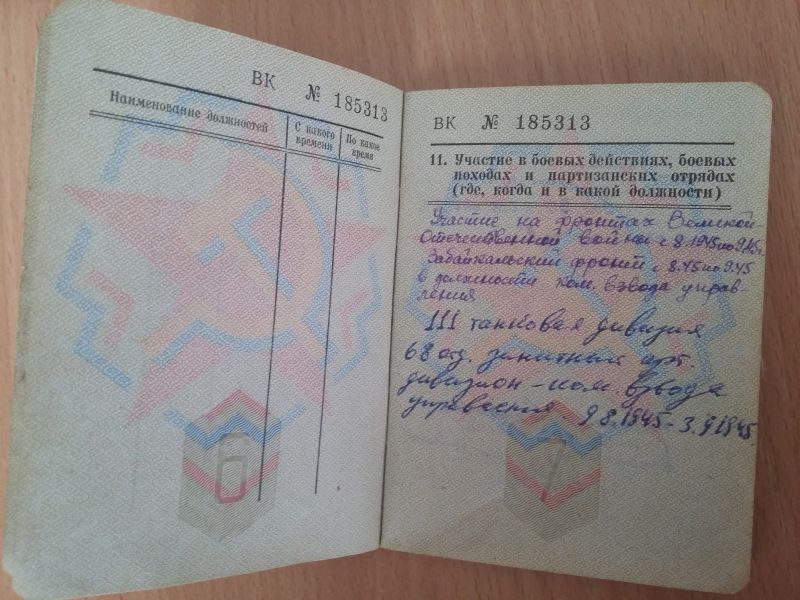 ВК № 185313
Наименование должностей
С какого
времени
По какое
время
6
ВК № 185313
11. Участие в боевых действиях, боевых
походах и партизанских отрядах
(где, когда и в какой должности)
Участие на фронтах Великой
Отечественной войны с 8.1945 по 9.45г.
Забайкальский фронт с 8.45 по 9.45
в должности ком. взвода управ-
ления
111 танковая дивизия
68 отд. зенитный арт.
дивизион - ком. взвода
управления 9.8.1945 - 3.9.1945
7